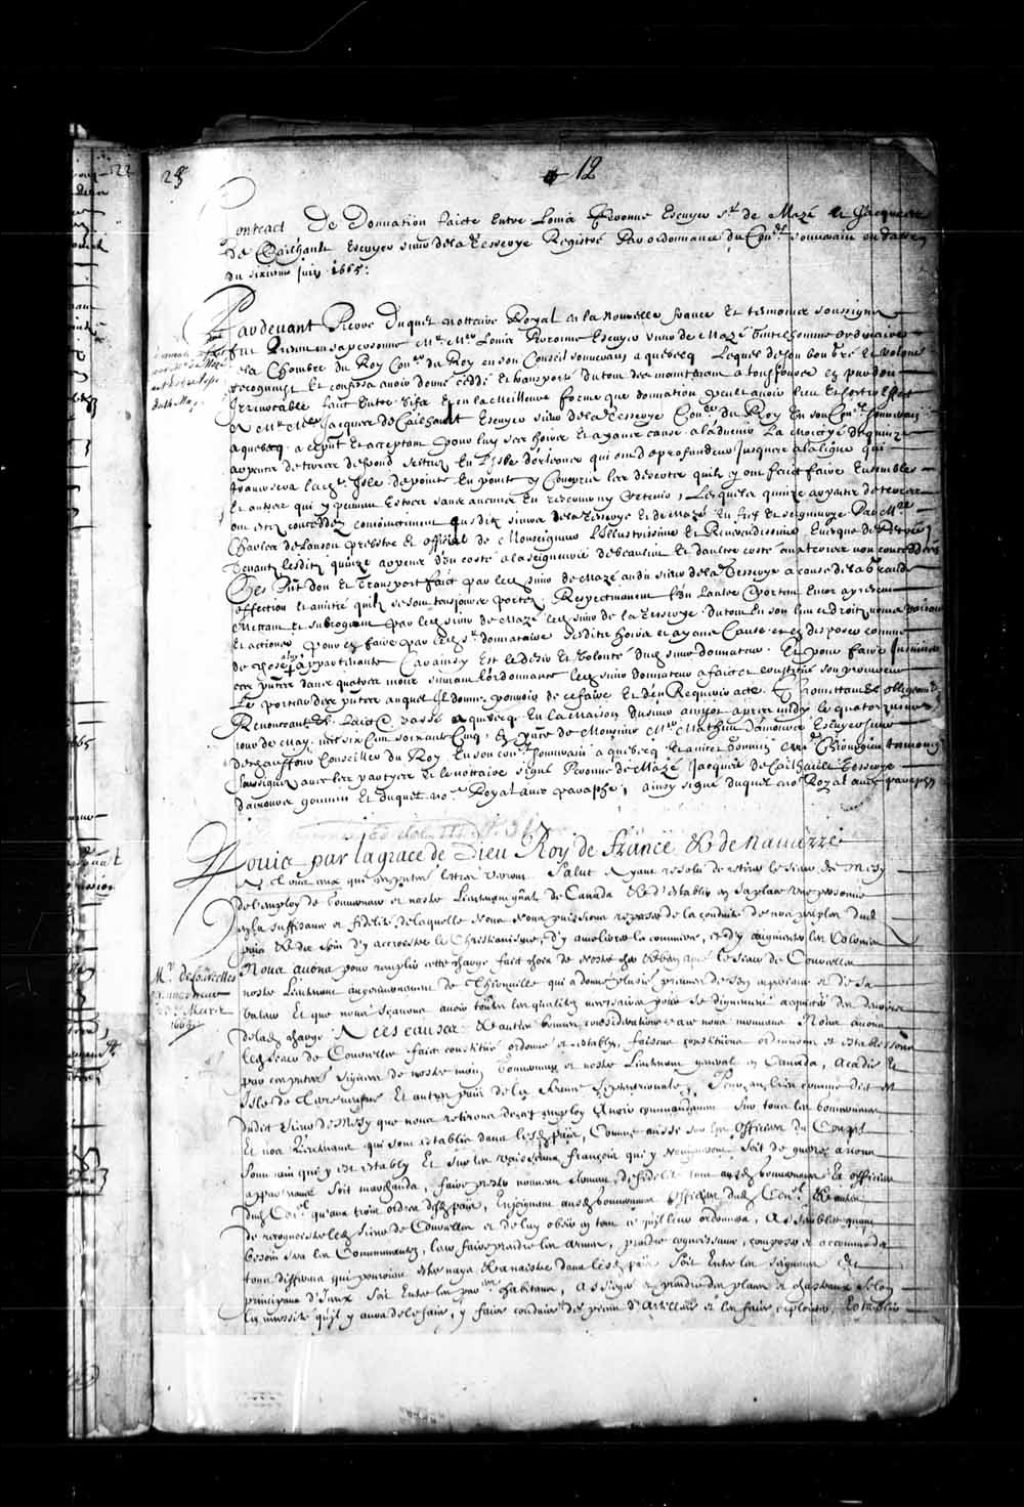 23
12
Contract De Donnation faicte Entre Louis Peronne Escuyer Sr de Mazé et Jacques
De Cailhault Escuyer sieur de la Tesserye Registré Par ordonnance du Conel souverain en datte
du sixiesme juin 1665
Pardevant Pierre Duquet nottaire Royal en la nouvelle france Et tesmoins soussignez
fut present en sa personne Me Louis Peronne Escuyer sieur de Mazé gentilhomme ordinaire
de la Chambre du Roy Coner du Roy en son Conseil souverain a quebecq Lequel de son bon gré Et volonté
recognust Et confessa avoir donné ceddé Et transporté du tout des maintenant a tousjours en pur don
Irrevocable faict Entre vifs Et en la Meilleure forme que donnation peult avoir lieu Et sortir effect
A Me Jacques de Cailhault Escuyer sieur de la Tesserye Coner du Roy En son Conel souverain
a quebecq a ce present Et acceptant pour luy ses hoirs Et ayans cause a l'advenir La moictyé de quinze
arpents de terre de front scituez En l'Isle d'orleans qui ont de profondeur jusques a la ligne qui
traversera lad. Isle de pointe En pointe y Compris les deserts quilz y ont faict faire Ensemble
Et autres qui y peuvent Estre sans aucune En reserver ny retenir, Lesquels quinze arpents de terre
ont esté conceddez conjoinctement ausdits sieurs de la Tesserye Et de Mazé En fief Et seigneurye Par Mre
Charles de Lauson prebstre Et official de Monseigneur L'Illustrissime Et Reverendissime Evesque de Petrée
Tenant lesdits quinze arpents d'un costé a la seigneurie de beaulieu Et d'aultre costé aux terres non conceddées
Ces present don Et Transport faict par led sieur de Mazé aud sieur de la Tesserye a cause de la grande
affection Et amitié quilz se sont tousjours portez Respectivement l'un L'autre Et portent Encor a present
Mettant Et subrogeant par led sieur de Mazé led sieur de la Tesserye du tout En son lieu droitz noms raisons
Et actions pour en faire par led Sr donnataire sesdits hoirs et ayans Cause et en disposer comme
de chose a luy appartenante Car ainsy Est le desir Et volonté dud sieur donnateur Et pour faire Insinuer
ces presentes dans quatre mois suivant l'ordonnance led sieur donnateur a faict et constitué son procureur
Le porteur des presentes auquel Il donne pouvoir de ce faire Et d'en Requerir acte. Promettant & obligeant &
Renonceant &c. Faict & passé a quebecq En la maison dud sieur apres midy le quatorziesme
jour de may mil six Cens soixante Cinq Es presence de Monsieur Me Mathieu Damours Escuyer sieur
deschauffour Conseiller du Roy En son conel souverain a quebecq Et Gommin Chirurgien tesmoins
soussignez avec lesd partyes Et le nottaire signé Peronne de Mazé Jacques de Cailhault Tesserye
Damours gommin Et duquet nore Royal avec paraphe, ainsy signé duquet nore Royal avec paraphe
Louis par la grace de Dieu Roy de france & de navarre
A Tous ceux qui ces presentes lettres verront Salut Ayant resolu de retirer le sieur de Mesy
de l'employ de Gouverneur et nostre Lieutenant gnal de Canada & d'establir en sa place une personne
en la suffisance et fidelité de laquelle Nous Nous puissions reposer de la conduite de nos peuples dud
pais & du soin d'y accroistre le Christianisme, d'y ameliorer le commerce, et d'y augmenter les Colonies
Nous avons pour remplir cette charge fait choix de nostre cher & bien amé le sieur de Courcelles
nostre Lieutenant au gouvernement de Thionville qui a donné plusieurs preuves de son experience et de sa
valeur Et que nous sçavons avoir toutes les qualitez necessaires pour se dignement acquitter des devoirs
de lad charge. A ces causes & autres bonnes considerations a ce nous mouvans Nous avons
led sieur de Courcelles fait constitué ordonné et establi, faisons constituons ordonnons et establissons
par ces presentes signées de nostre main Gouverneur et nostre Lieutenant general en Canada, Acadie Et
Isle de Terreneufve Et autres pais de la france Septentrionale, Pour au lieu comme dit est
dudit sieur de Mesy que nous retirons dudit employ Avoir commandement sur tous les Gouverneurs
Et nos Lieutenans qui sont establis dans lesd pais, Comme aussi sur les Officiers du Conseil
Souverain qui y est estably Et sur les vaisseaux françois qui y navigueront Soit de guerre a nous
appartenans Soit marchands, faire prester nouveau serment de fidelité tant ausd gouverneurs Et officiers
dud Conel qu'aux trois ordres desd pais, Enjoignons ausd gouverneurs officiers dud Conel & autres
de recognoistre led sieur de Courcelles et de luy obeir en tout ce qu'il leur ordonnera, Assembler quand
besoin sera les Communautez, leur faire prendre les armes, prendre cognoissance, composer et accommoder
tous differens qui pourroient estre nays & a naistre dans lesd pais Soit Entre les Seigneurs Et
principaux d'iceux Soit Entre les particers habitans, Assieger et prendre des places et chasteaux Selon
la necessité qu'il y aura de le faire, y faire conduire des pieces d'artillerie et les faire exploiter, Establir
Mr de Courcelles
Gouverneur
Mars
1665